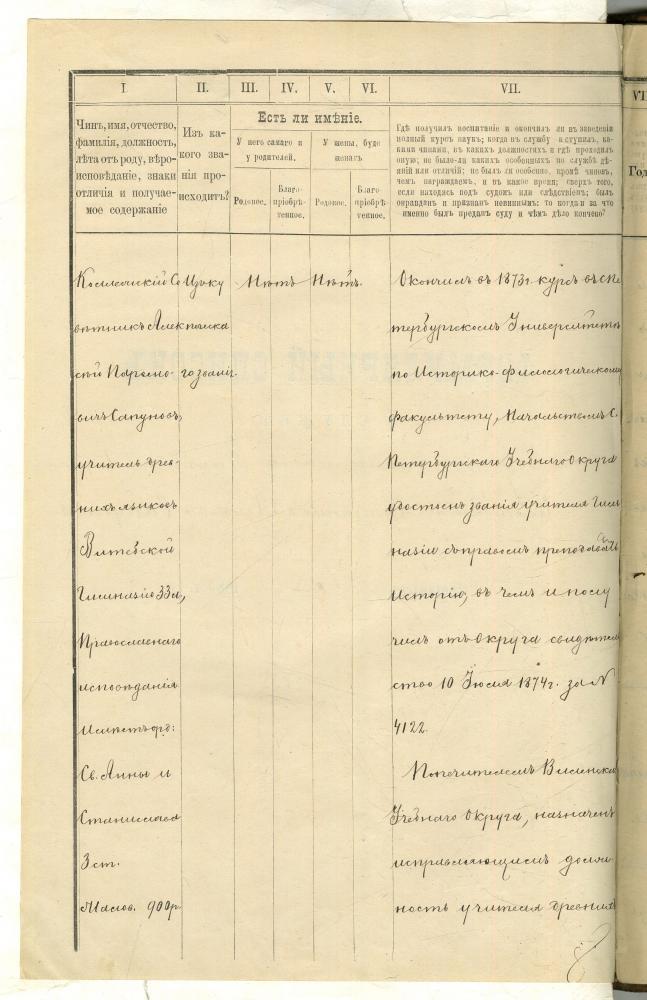 I.
II.
III.
IV.
V.
VI.
VII.
VII
Чинъ, имя, отчество,
фамилія, должность,
лѣта отъ роду, вѣро-
исповѣданіе, знаки
отличія и получае-
мое содержаніе
Изъ ка-
кого зва-
нія про-
исходитъ?
Есть ли имѣніе.
У него самаго и
у родителей.
У жены, буде
женатъ
Родовое.
Благо-
пріобрѣ-
тенное.
Родовое.
Благо-
пріобрѣ-
тенное.
Гдѣ получилъ воспитаніе и окончилъ ли въ заведеніи
полный курсъ наукъ; когда въ службу вступилъ, ка-
кими чинами, въ какихъ должностяхъ и гдѣ проходилъ
оную; не было-ли какихъ особенныхъ по службѣ дѣ-
яній или отличій; не былъ ли особенно, кромѣ чиновъ,
чемъ награждаемъ, и въ какое время; сверхъ того,
если находясь подъ судомъ или слѣдствіемъ, былъ
оправданъ и признанъ невиннымъ: то когда и за что
именно былъ преданъ суду и чѣмъ дѣло кончено?
Год
Коллежскій Со
вѣтникъ Алек
сѣй Парѳено-
вичъ Сапуновъ,
учитель древ-
нихъ языковъ
Витебской
Гимназіи 33 л.,
Православнаго
исповѣданія
Имѣетъ орд:
Св. Анны и
Станислава
3 ст.
Жалов. 900 р.
го званія.
Нѣтъ
Нѣтъ.
Окончилъ въ 1873 г. курсъ въ С Пе
тербургскомъ Университетѣ
по Историко-филологическому
факультету, Начальствомъ С.
Петербургскаго Учебнаго Округа
удостоенъ званія учителя Гим
назіи съ правомъ преподавать
Исторію, въ чемъ и полу
чилъ отъ Округа свидѣтель
ство 10 Іюля 1874 г. за №
4122.
Попечителемъ Виленскаго
Учебнаго Округа, назначенъ
исправляющимъ долж-
ность учителя древнихъ